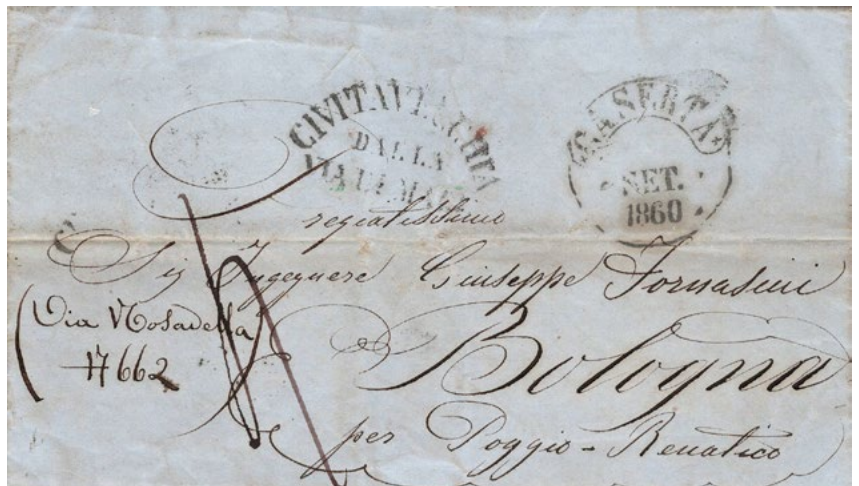 CIVITAVECCHIA
DALLA
VIA DI MARE
CASERTA
SET.
1860
Pregiatissimo
Sig Ingegnere Giuseppe Fornasini
(Via Nosadella
N 662)
Bologna
per Poggio-Renatico